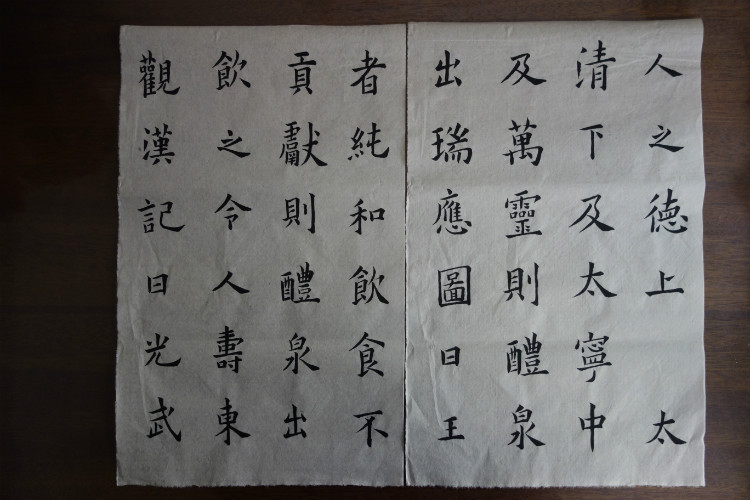 人之德上　太
清下及太寧中
及萬靈則醴泉
出瑞應圖曰王
者純和飲食不
貢獻則醴泉出
飲之令人壽東
觀漢記曰光武